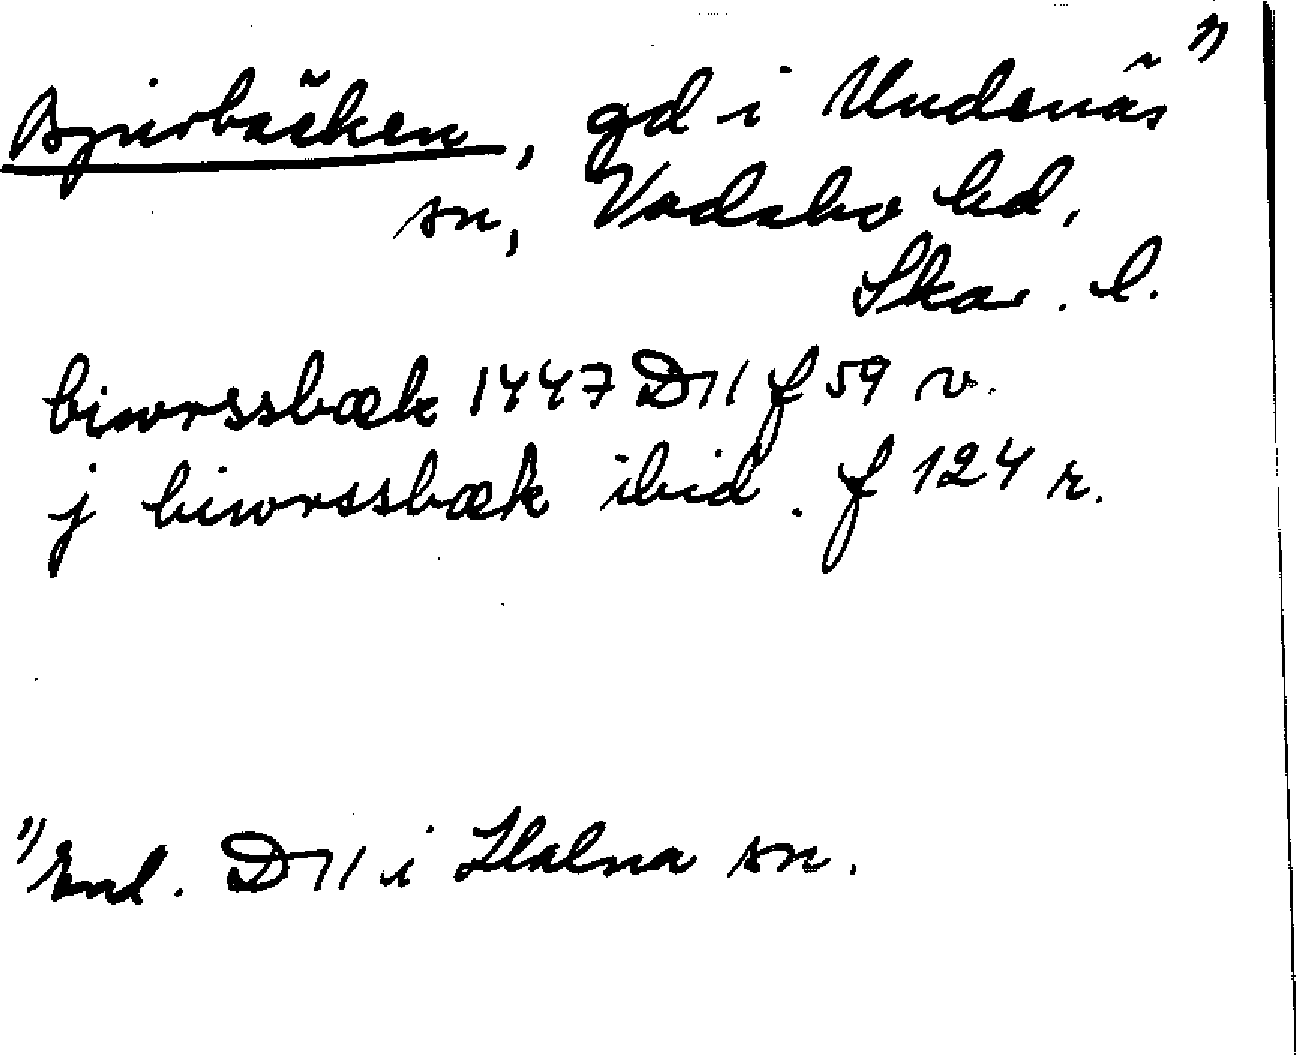 Bjurbäcken, gd i Undenäs 1)
sn, Vadsbo hd,
Skar. l.
biworssbæk 1447 D11 f 59 v.
j biworssbæk ibid. f 124 r.
1) Enl. D11 i Halna sn.